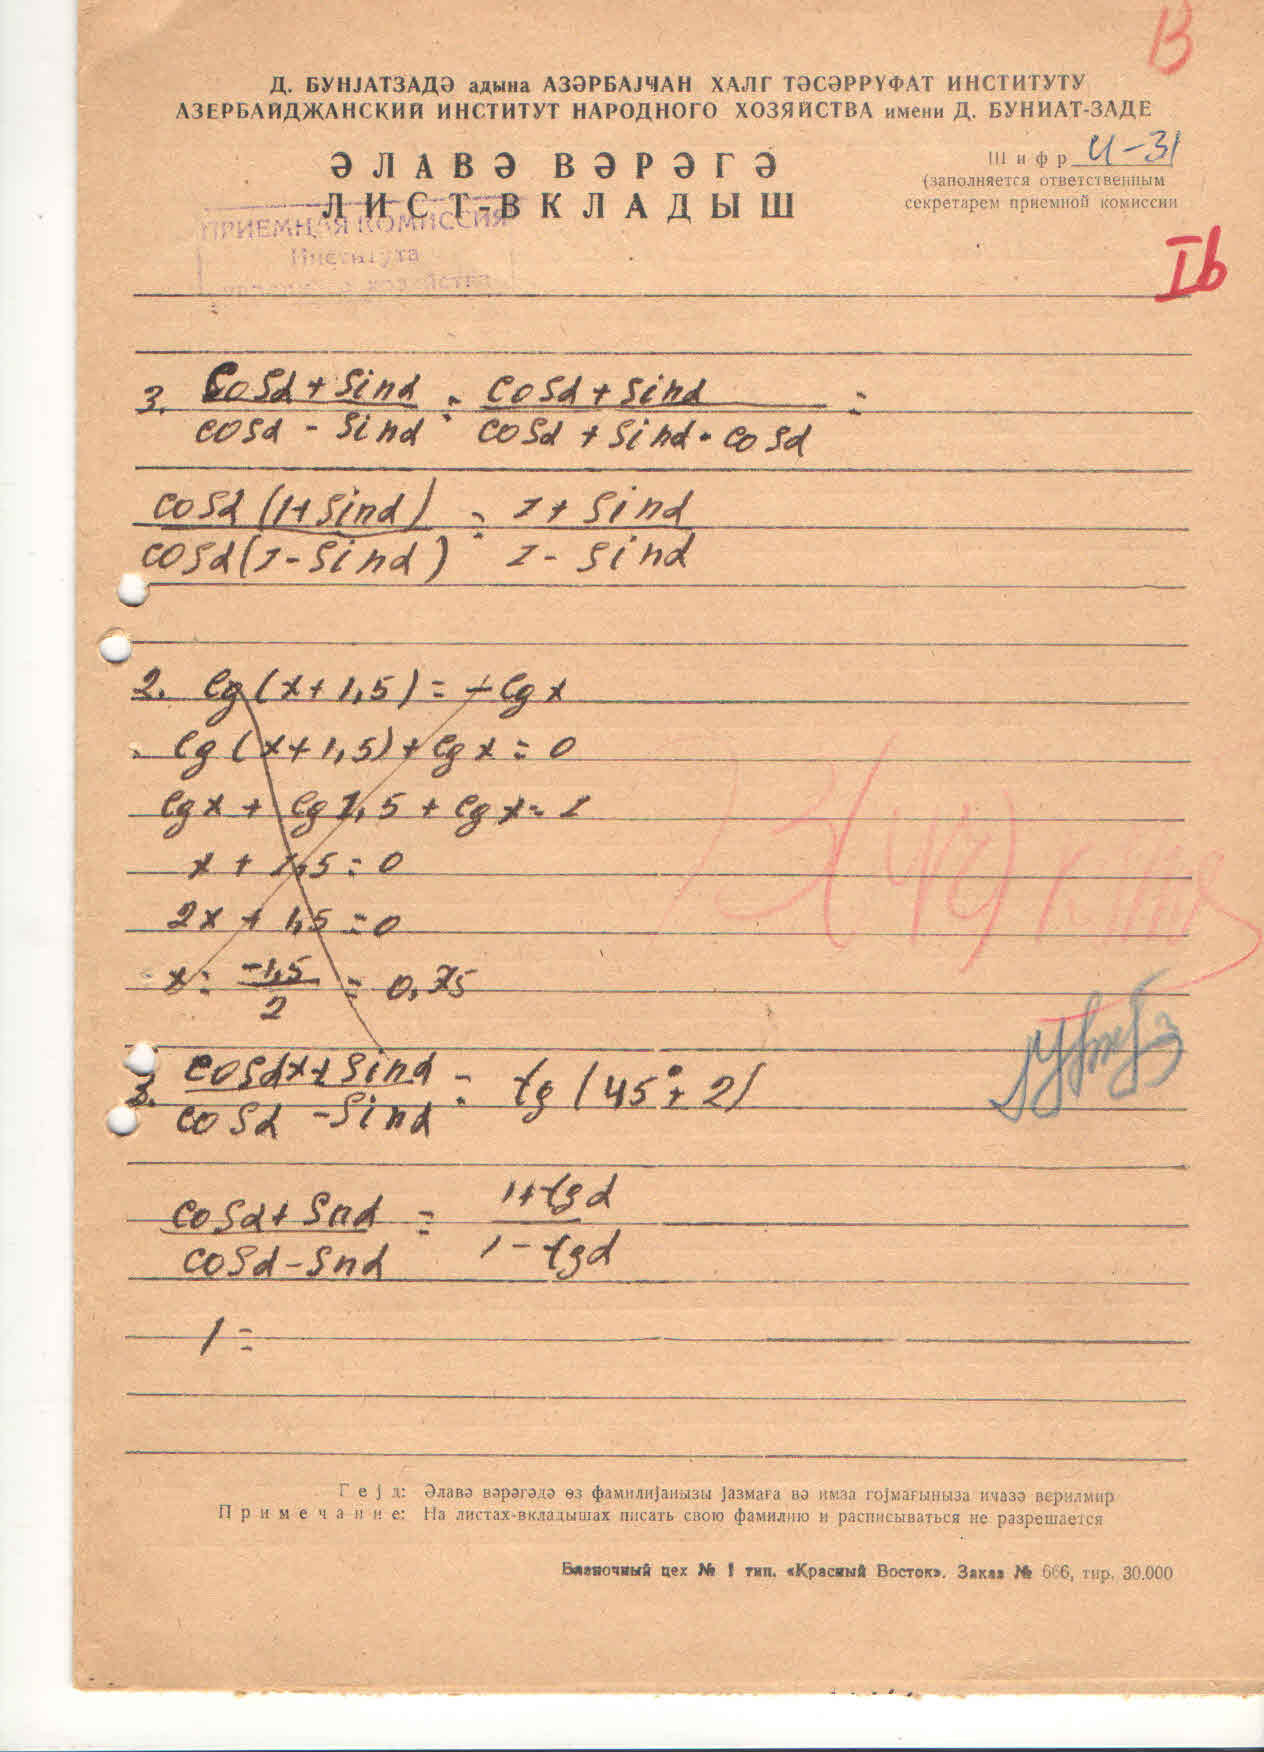 В
Д. БУНЈАТЗАДӘ адына АЗӘРБАЈҸАН ХАЛГ ТӘСӘРРҮФАТ ИНСТИТУТУ
АЗЕРБАЙДЖАНСКИЙ ИНСТИТУТ НАРОДНОГО ХОЗЯЙСТВА имени Д. БУНИАТ-ЗАДЕ
ӘЛАВӘ ВӘРӘГӘ
ЛИСТ-ВКЛАДЫШ
Шифр И-31
(заполняется ответственным
секретарем приемной комиссии
ПРИЕМНАЯ КОМИССИЯ
Института
Iв
3. (cosα + sinα)/(cosα - sinα) = (cosα + sinα)/(cosα + sinα · cosα) =
cosα (1+ sinα)/cosα (1 - sinα) = 1 + sinα/1 - sinα
2. lg (x + 1,5) = - lg x
lg (x + 1,5) + lg x = 0
lg x + lg 1,5 + lg x = 1
x + 1,5 = 0
2x + 1,5 = 0
x = -1,5/2 = 0,75
3. cosαx + sinα/cosα - sinα = tg (45° + 2)
cosα + snα/cosα - snα = 1+ tgα/1 - tgα
1 =
Гејд: Әлавә вәрәгәдә өз фамилијанызы јазмаға вә имза гојмағыныза иҹазә верилмир
Примечание: На листах-вкладышах писать свою фамилию и расписываться не разрешается
Бланочный цех № 1 тип. «Красный Восток». Заказ № 666, тир. 30.000